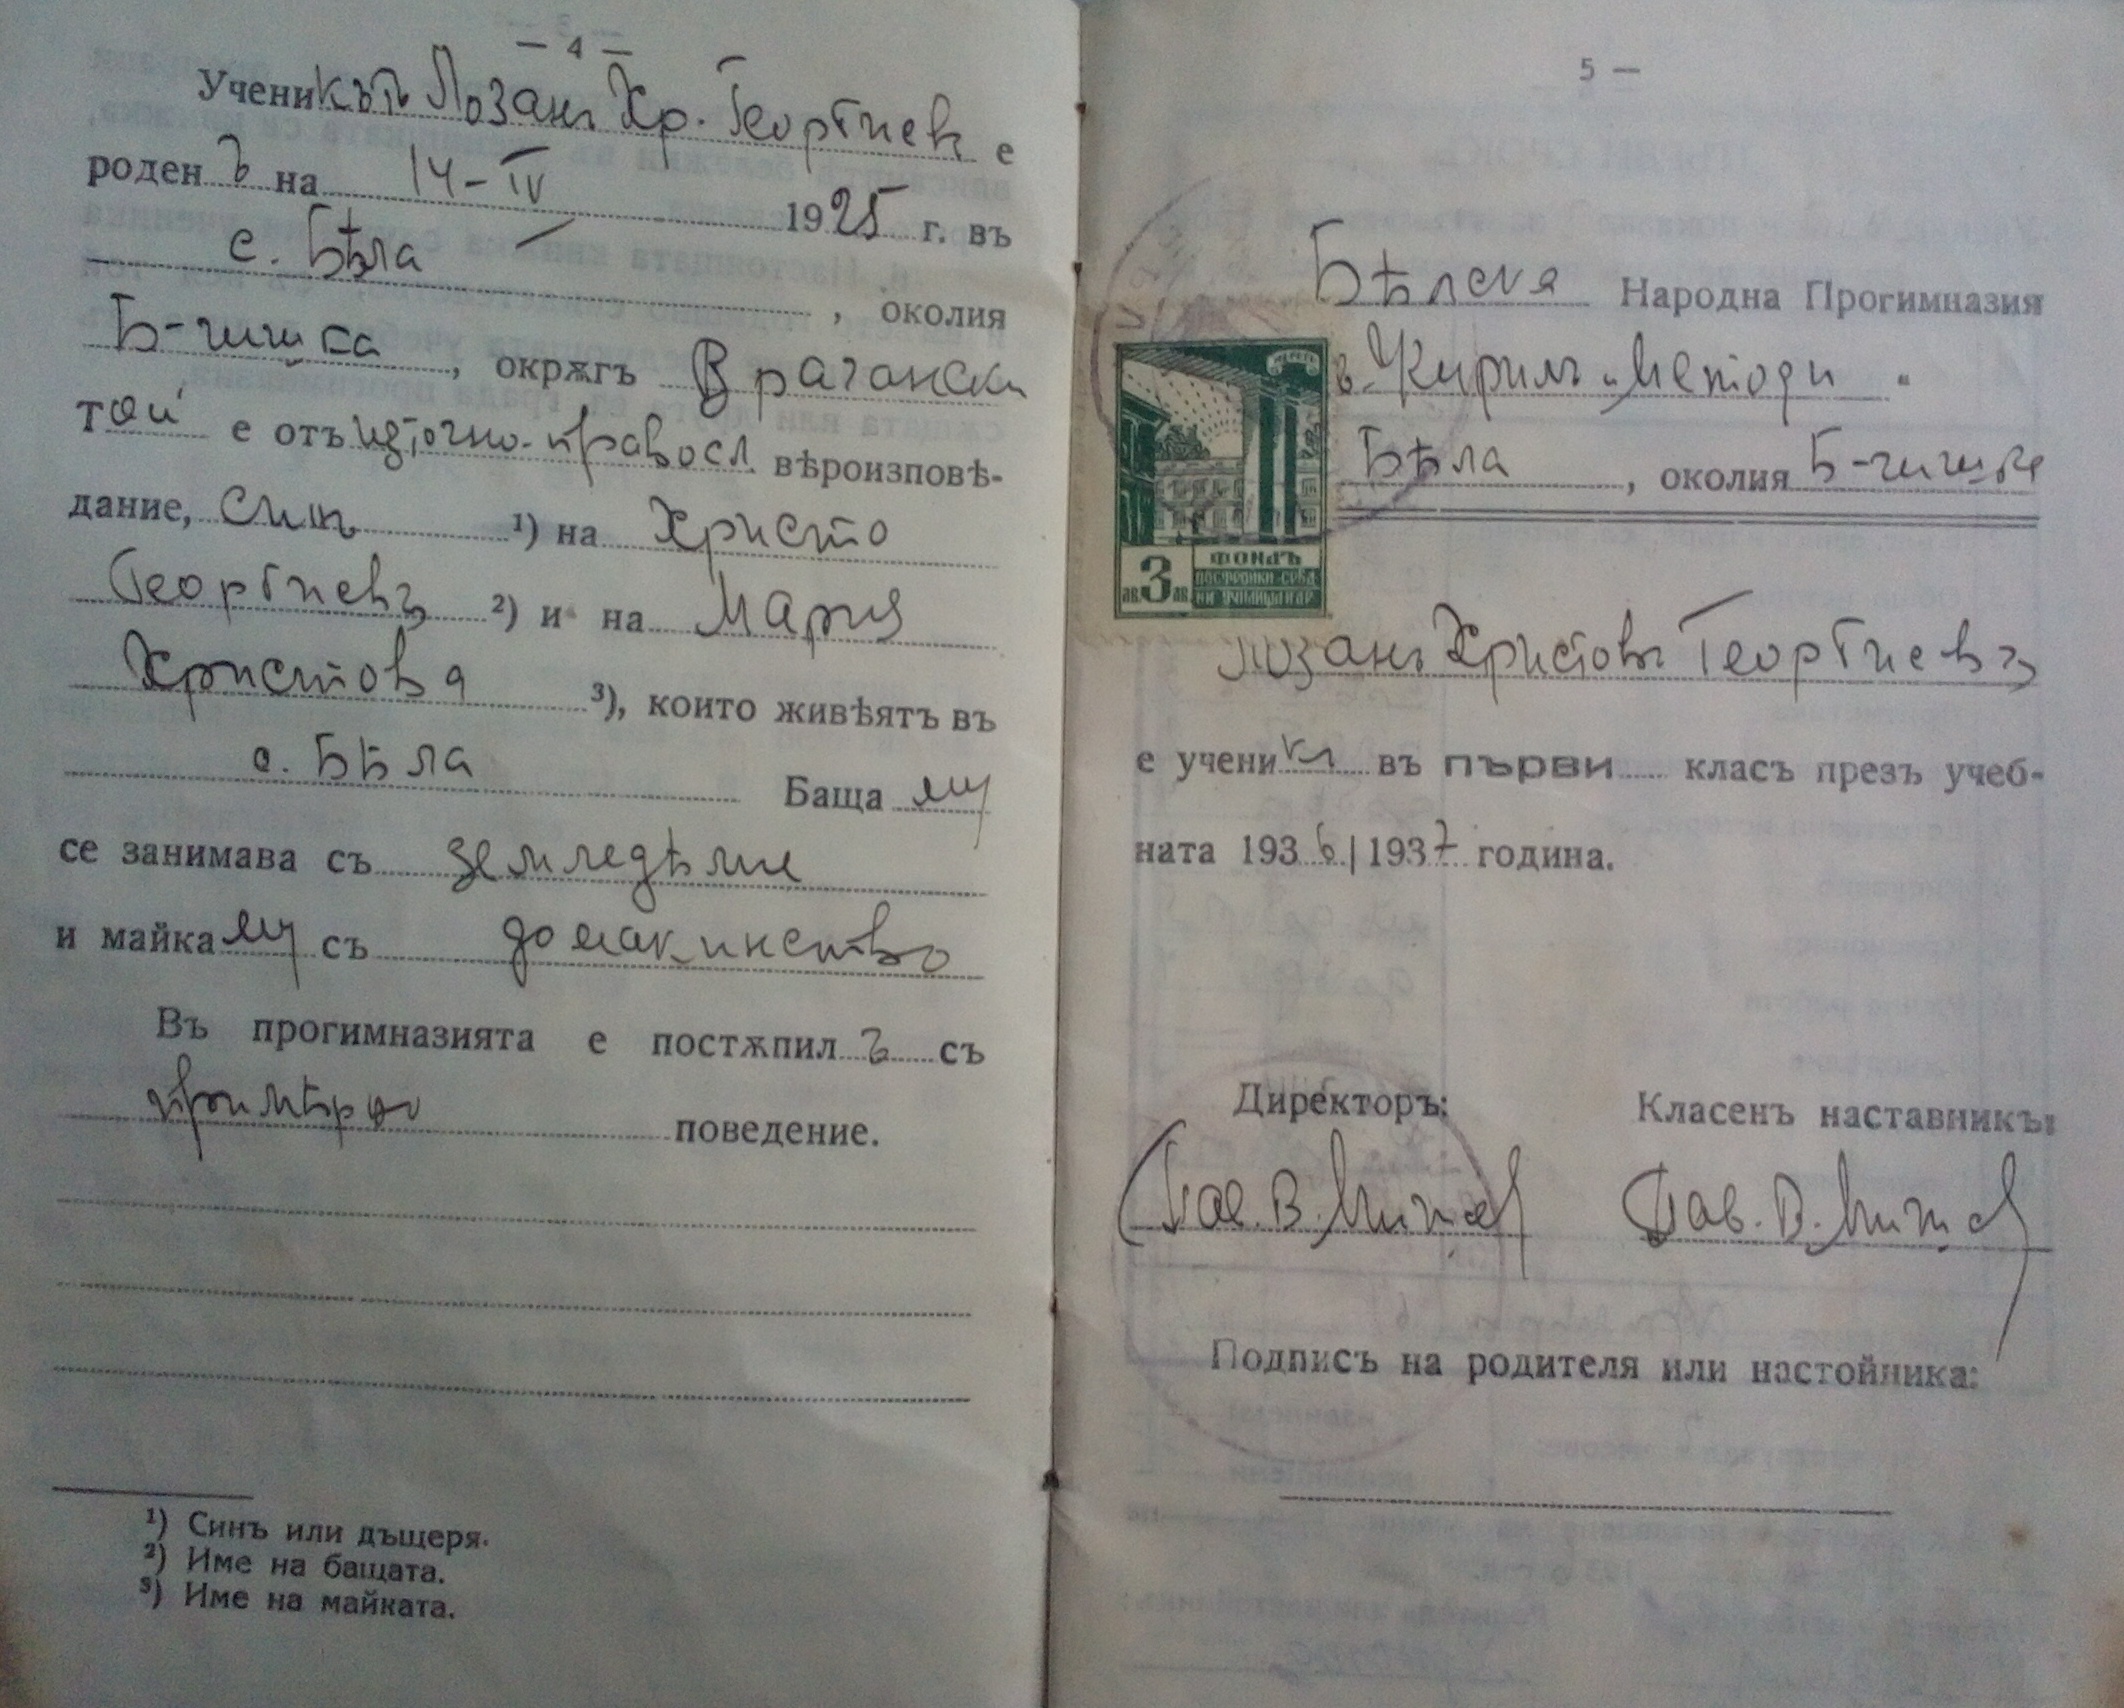 — 4 —
Ученикътъ Лозанъ Хр. Георгиевъ е
роденъ на 14-IV 1925 г. въ
с. Бѣла
, околия
Б-чишка, окрѫгъ Врачански
той е отъ източно-правосл. вѣроизповѣ-
дание, синъ ¹) на Христо
Георгиевъ ²) и на Мария
Христова ³), които живѣятъ въ
с. Бѣла Баща му
се занимава съ земледѣлие
и майка му съ домакинство
Въ прогимназията е постѫпилъ съ
примѣрно поведение.
¹) Синъ или дъщеря.
²) Име на бащата.
³) Име на майката.
5 —
Бѣлска Народна Прогимназия
„Кирилъ и Методи“
Бѣла, околия Б-чишка
3
лв. лв.
ФОНДЪ
ПОСТРОЙКИ СГРАД
НИ УЧИЛИЩА
Лозанъ Христовъ Георгиевъ
е ученикъ въ първи класъ презъ учеб-
ната 1936/1937 година.
Директоръ: Класенъ наставникъ:
Пав. В. Митов Пав. В. Митов
Подписъ на родителя или настойника: